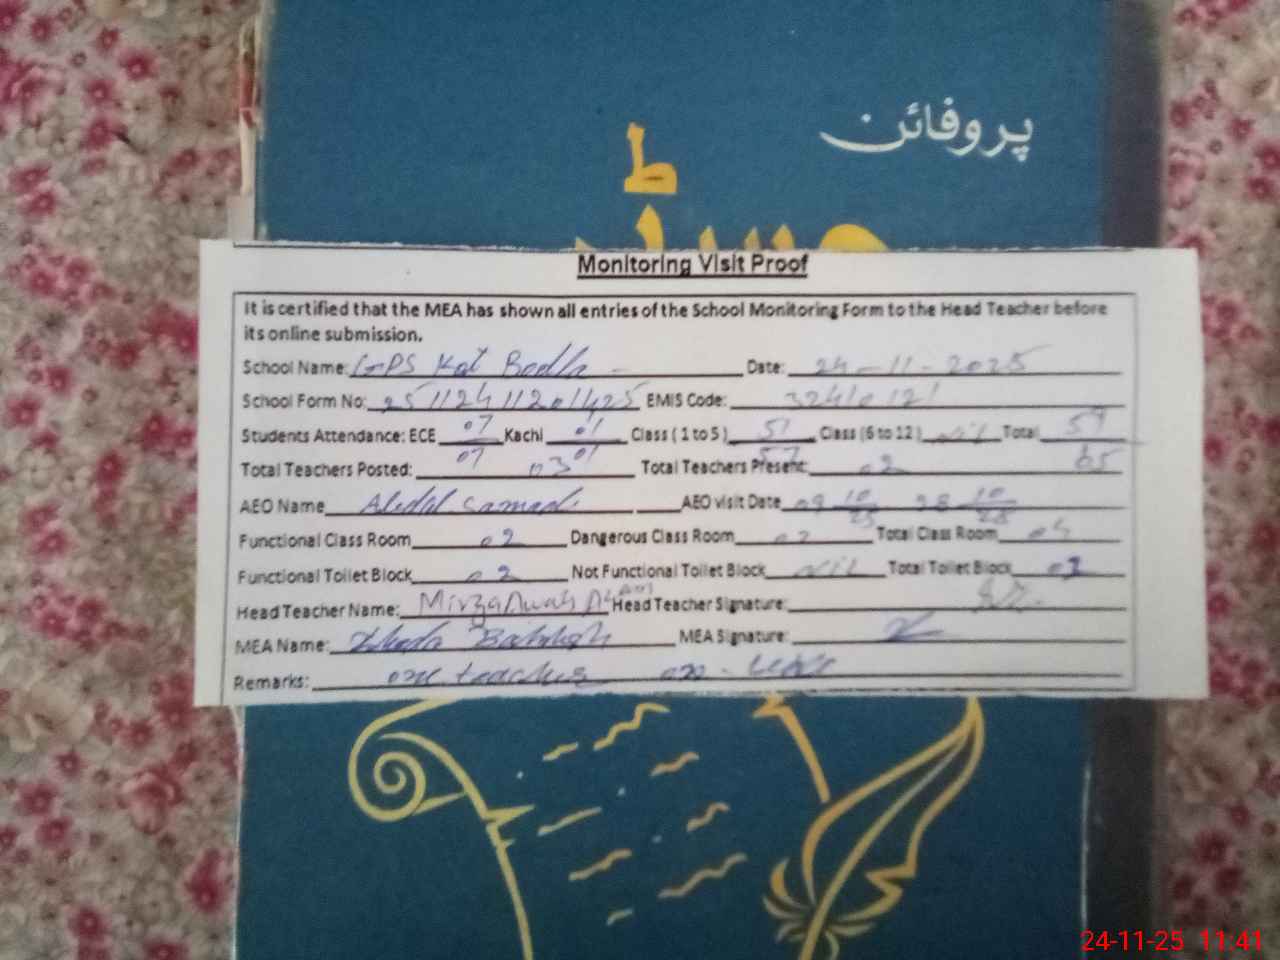 پروفائن
Monitoring Visit Proof
It is certified that the MEA has shown all entries of the School Monitoring Form to the Head Teacher before
its online submission.
School Name: GPS Kot Bodla Date: 24-11-2025
School Form No: EMIS Code:
Students Attendance: ECE 07/07 Kachi 01/01 Class (1 to 5) 51/57 Class (6 to 12) Nil Total 59/65
Total Teachers Posted: 03 Total Teachers Present: 02
AEO Name Abdul Samad AEO visit Date
Functional Class Room 02 Dangerous Class Room 02 Total Class Room 04
Functional Toilet Block 02 Not Functional Toilet Block Nil Total Toilet Block
Head Teacher Name: Mirza Head Teacher Signature:
MEA Name: MEA Signature:
Remarks: one teacher on - leave
24-11-25 11:41